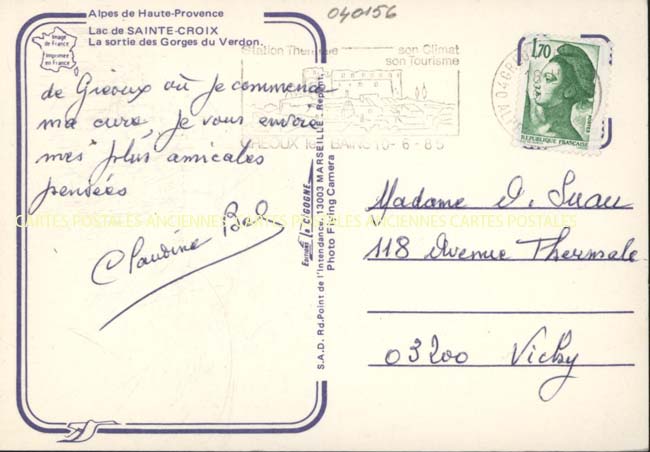 040156
Alpes de Haute-Provence
Lac de SAINTE-CROIX
La sortie des Gorges du Verdon.
Image de France
Imprimée en France
Station Thermale
son Climat
son Tourisme
GREOUX les BAINS 10-6-85
1,70
REPUBLIQUE FRANÇAISE
de Gréoux où je commence
ma cure, je vous envoie
mes plus amicales
pensées
Claudine
Editions la CIGOGNE
S.A.D. Rd. Point de l'Intendance, 13003 MARSEILLE - Reprod.
Photo Flying Camera
Madame D. Suau
118 Avenue Thermale
03200 Vichy
CARTES POSTALES ANCIENNES CARTES POSTALES ANCIENNES CARTES POSTALES